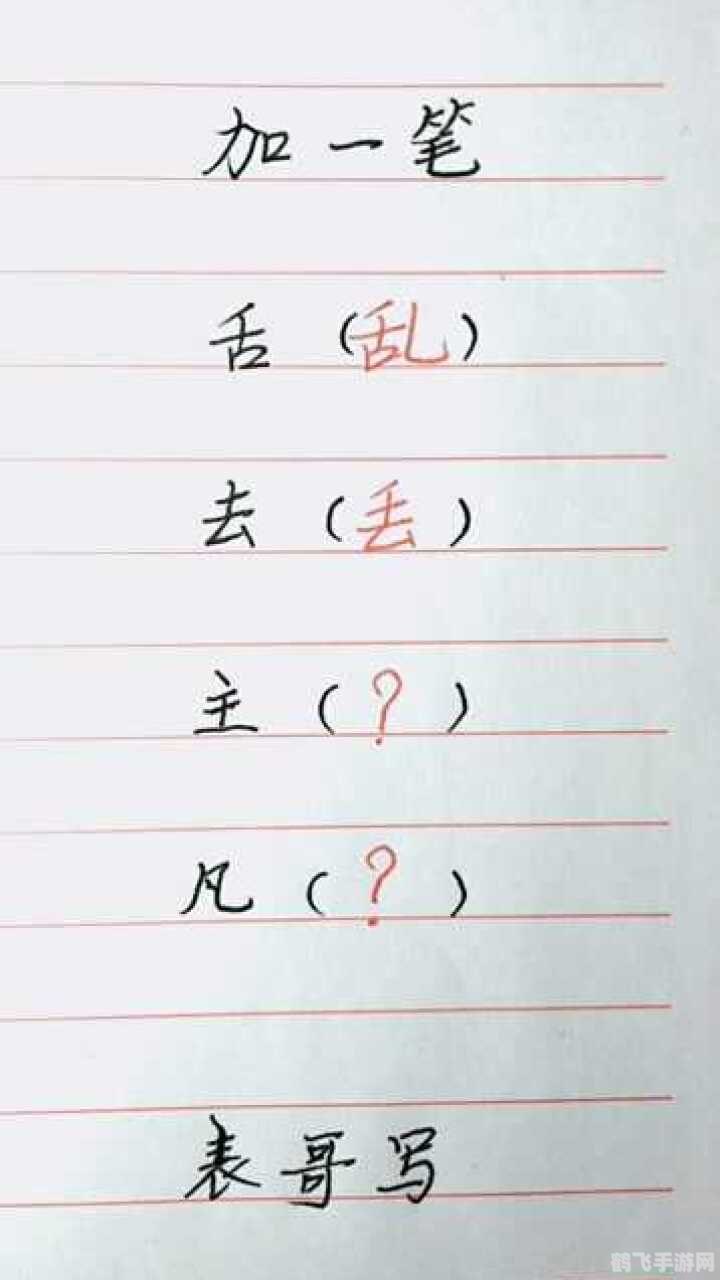 加一笔
舌（乱）
去（丢）
主（？）
凡（？）
表哥写
鹤飞手游网